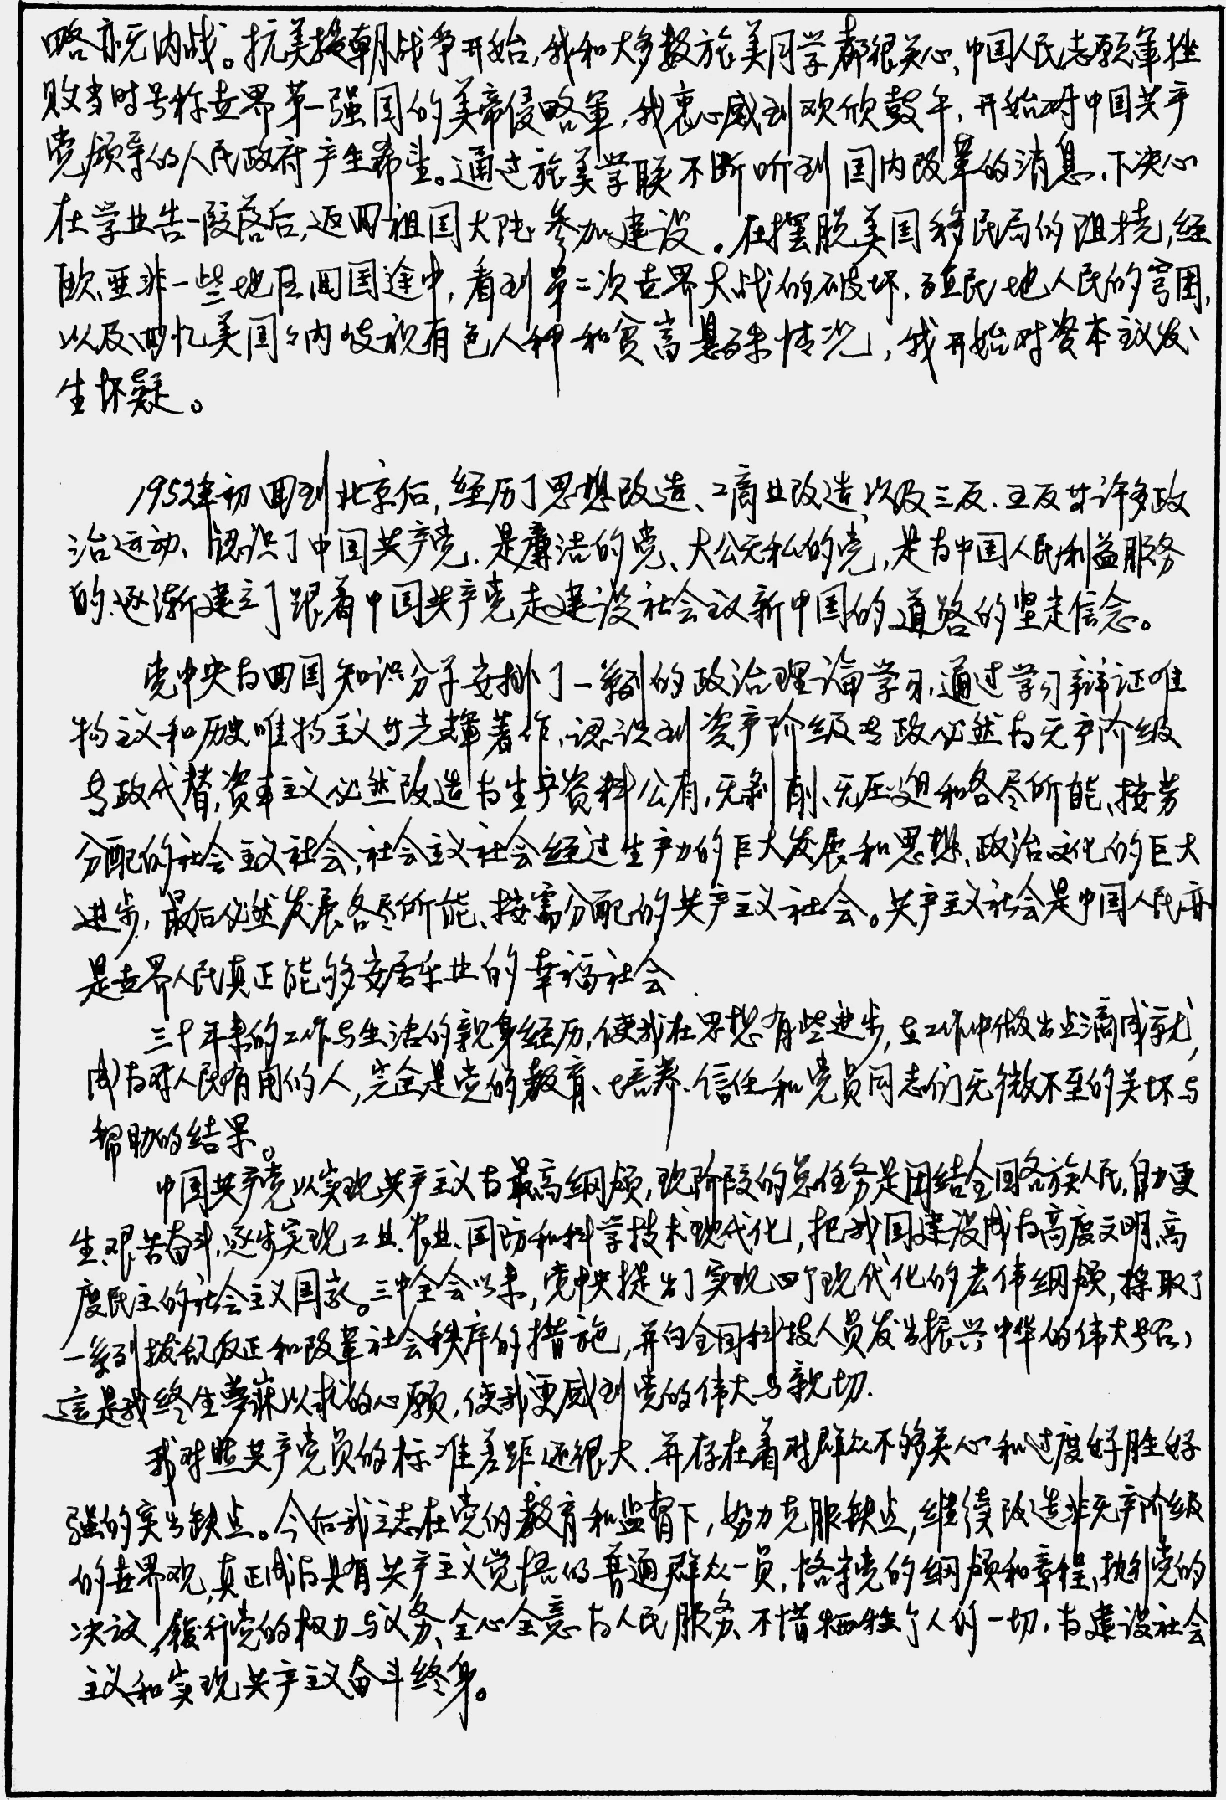 略亦无内战。抗美援朝战争开始,我和大多数旅美同学都很关心,中国人民志愿軍挫
败当时号称世界第一强国的美帝侵略軍,我衷心感到欢欣鼓午,开始对中国共产
党领导的人民政府产生希望。通过旅美学联不断听到国内改革的消息,下决心
在学业告一段落后,返回祖国大陆参加建设。在摆脱美国移民局的阻挠,经
欧、亚、非一些地区回国途中,看到第二次世界大战的破坏,殖民地人民的穷困,
以及回忆美国国内歧视有色人种和贫富悬殊情况,我开始对资本主义发
生怀疑。
1952年初回到北京后,经历了思想改造、工商业改造以及三反、五反等许多政
治运动、认识了中国共产党,是廉洁的党、大公无私的党,是为中国人民利益服务
的,逐渐建立了跟着中国共产党走建设社会主义新中国的道路的坚定信念。
党中央为回国知识分子安排了一系列的政治理论学习,通过学习辩证唯
物主义和历史唯物主义等光輝著作,认识到资产阶级专政必然为无产阶级
专政代替,资本主义必然改造为生产资料公有,无剥削、无压迫和各尽所能、按劳
分配的社会主义社会,社会主义社会经过生产力的巨大发展和思想、政治文化的巨大
进步,最后必然发展各尽所能、按需分配的共产主义社会。共产主义社会是中国人民亦
是世界人民真正能够安居乐业的幸福社会
三十年来的工作与生活的亲身经历,使我在思想有些进步,在工作中做出点滴成就,
成为对人民有用的人,完全是党的教育、培养、信任和党员同志们无微不至的关怀与
帮助的结果。
中国共产党以实现共产主义为最高纲领,现阶段的总任务是团结全国各族人民,自力更
生,艰苦奋斗,逐步实现工业、农业、国防和科学技术现代化,把我国建设成为高度文明、高
度民主的社会主义国家。三中全会以来,党中央提出了实现四个现代化的宏伟纲领,採取了
一系列拨乱反正和改革社会秩序的措施,并向全国科技人员发出振兴中华的伟大号召,
這是我终生梦寐以求的心愿,使我更感到党的伟大与亲切.
我对照共产党员的标准差距还很大,并存在着对群众不够关心和过度好胜好
强的突出缺点。今后我立志在党的教育和监督下,努力克服缺点,继续改造非无产阶级
的世界观,真正成为具有共产主义觉悟的普通群众一员,恪守党的纲领和章程,执行党的
决议,履行党的权力与义务、全心全意为人民服务、不惜牺牲个人的一切,为建设社会
主义和实现共产主义奋斗终身。